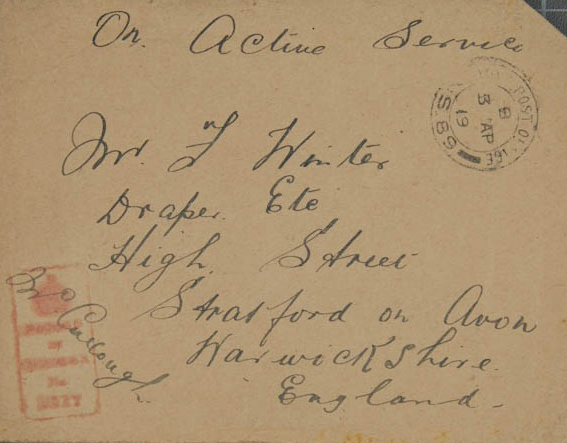 On Active Service
POST OFFICE
B
3 AP
19
S.B.S
Mr. F Winter
Draper Etc
High Street
Stratford on Avon
Warwickshire.
England.
McCullough.
PASSED
BY
CENSOR
No